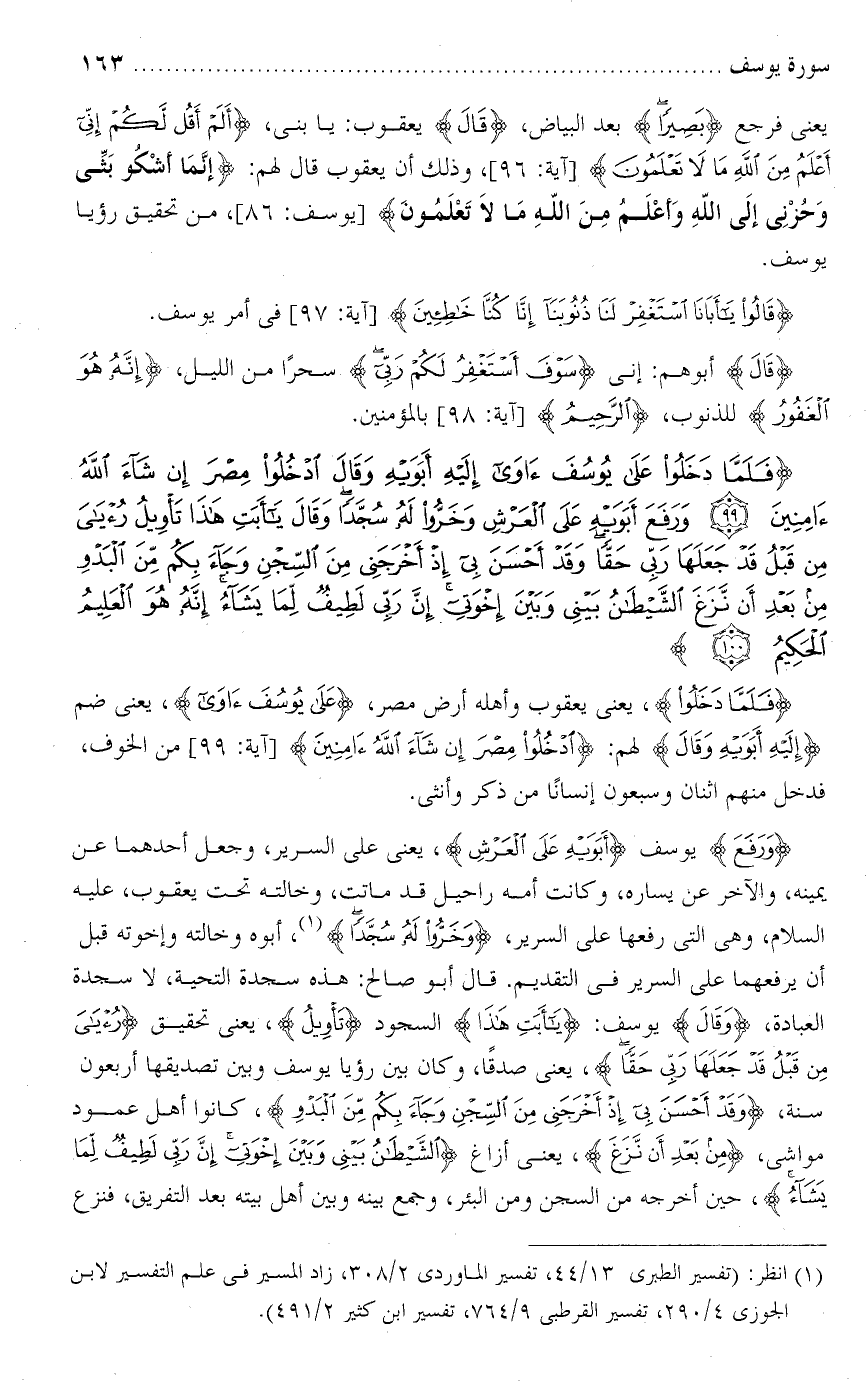 سورة يوسف ........................................................................ ١٦٣
يعنى فرجع ﴿بَصِيرًاۖ﴾ بعد البياض، ﴿قَالَ﴾ يعقوب: يا بنى، ﴿أَلَمْ أَقُل لَّكُمْ إِنِّىٓ
أَعْلَمُ مِنَ ٱللَّهِ مَا لَا تَعْلَمُونَ﴾ [آية: ٩٦]، وذلك أن يعقوب قال لهم: ﴿إِنَّمَا أَشْكُو بَثِّى
وَحُزْنِى إِلَى اللَّهِ وَأَعْلَمُ مِنَ اللَّهِ مَا لاَ تَعْلَمُونَ﴾ [يوسف: ٨٦]، من تحقيق رؤيا
يوسف.
﴿قَالُوا۟ يَٰٓأَبَانَا ٱسْتَغْفِرْ لَنَا ذُنُوبَنَآ إِنَّا كُنَّا خَٰطِـِٔينَ﴾ [آية: ٩٧] فى أمر يوسف.
﴿قَالَ﴾ أبوهم: إنى ﴿سَوْفَ أَسْتَغْفِرُ لَكُمْ رَبِّىٓۖ﴾ سحرًا من الليل، ﴿إِنَّهُۥ هُوَ
ٱلْغَفُورُ﴾ للذنوب، ﴿ٱلرَّحِيمُ﴾ [آية: ٩٨] بالمؤمنين.
﴿فَلَمَّا دَخَلُوا۟ عَلَىٰ يُوسُفَ ءَاوَىٰٓ إِلَيْهِ أَبَوَيْهِ وَقَالَ ٱدْخُلُوا۟ مِصْرَ إِن شَآءَ ٱللَّهُ
ءَامِنِينَ ٩٩ وَرَفَعَ أَبَوَيْهِ عَلَى ٱلْعَرْشِ وَخَرُّوا۟ لَهُۥ سُجَّدًاۖ وَقَالَ يَٰٓأَبَتِ هَٰذَا تَأْوِيلُ رُءْيَٰىَ
مِن قَبْلُ قَدْ جَعَلَهَا رَبِّى حَقًّاۖ وَقَدْ أَحْسَنَ بِىٓ إِذْ أَخْرَجَنِى مِنَ ٱلسِّجْنِ وَجَآءَ بِكُم مِّنَ ٱلْبَدْوِ
مِنۢ بَعْدِ أَن نَّزَغَ ٱلشَّيْطَٰنُ بَيْنِى وَبَيْنَ إِخْوَتِىٓۚ إِنَّ رَبِّى لَطِيفٌ لِّمَا يَشَآءُۚ إِنَّهُۥ هُوَ ٱلْعَلِيمُ
ٱلْحَكِيمُ ١٠٠﴾
﴿فَلَمَّا دَخَلُوا۟﴾، يعنى يعقوب وأهله أرض مصر، ﴿عَلَىٰ يُوسُفَ ءَاوَىٰٓ﴾، يعنى ضم
﴿إِلَيْهِ أَبَوَيْهِ وَقَالَ﴾ لهم: ﴿ٱدْخُلُوا۟ مِصْرَ إِن شَآءَ ٱللَّهُ ءَامِنِينَ﴾ [آية: ٩٩] من الخوف،
فدخل منهم اثنان وسبعون إنسانًا من ذكر وأنثى.
﴿وَرَفَعَ﴾ يوسف ﴿أَبَوَيْهِ عَلَى ٱلْعَرْشِ﴾، يعنى على السرير، وجعل أحدهما عن
يمينه، والآخر عن يساره، وكانت أمه راحيل قد ماتت، وخالته تحت يعقوب، عليه
السلام، وهى التى رفعها على السرير، ﴿وَخَرُّوا۟ لَهُۥ سُجَّدًاۖ﴾(١)، أبوه وخالته وإخوته قبل
أن يرفعهما على السرير فى التقديم. قال أبو صالح: هذه سجدة التحية، لا سجدة
العبادة، ﴿وَقَالَ﴾ يوسف: ﴿يَٰٓأَبَتِ هَٰذَا﴾ السجود ﴿تَأْوِيلُ﴾، يعنى تحقيق ﴿رُءْيَٰىَ
مِن قَبْلُ قَدْ جَعَلَهَا رَبِّى حَقًّاۖ﴾، يعنى صدقًا، وكان بين رؤيا يوسف وبين تصديقها أربعون
سنة، ﴿وَقَدْ أَحْسَنَ بِىٓ إِذْ أَخْرَجَنِى مِنَ ٱلسِّجْنِ وَجَآءَ بِكُم مِّنَ ٱلْبَدْوِ﴾، كانوا أهل عمود
مواشى، ﴿مِنۢ بَعْدِ أَن نَّزَغَ﴾، يعنى أزاغ ﴿ٱلشَّيْطَٰنُ بَيْنِى وَبَيْنَ إِخْوَتِىٓۚ إِنَّ رَبِّى لَطِيفٌ لِّمَا
يَشَآءُۚ﴾، حين أخرجه من السجن ومن البئر، وجمع بينه وبين أهل بيته بعد التفريق، فنزع
(١) انظر: (تفسير الطبرى ٤٤/١٣، تفسير الماوردى ٣٠٨/٢، زاد المسير فى علم التفسير لابن
الجوزى ٢٩٠/٤، تفسير القرطبى ٧٦٤/٩، تفسير ابن كثير ٤٩١/٢).